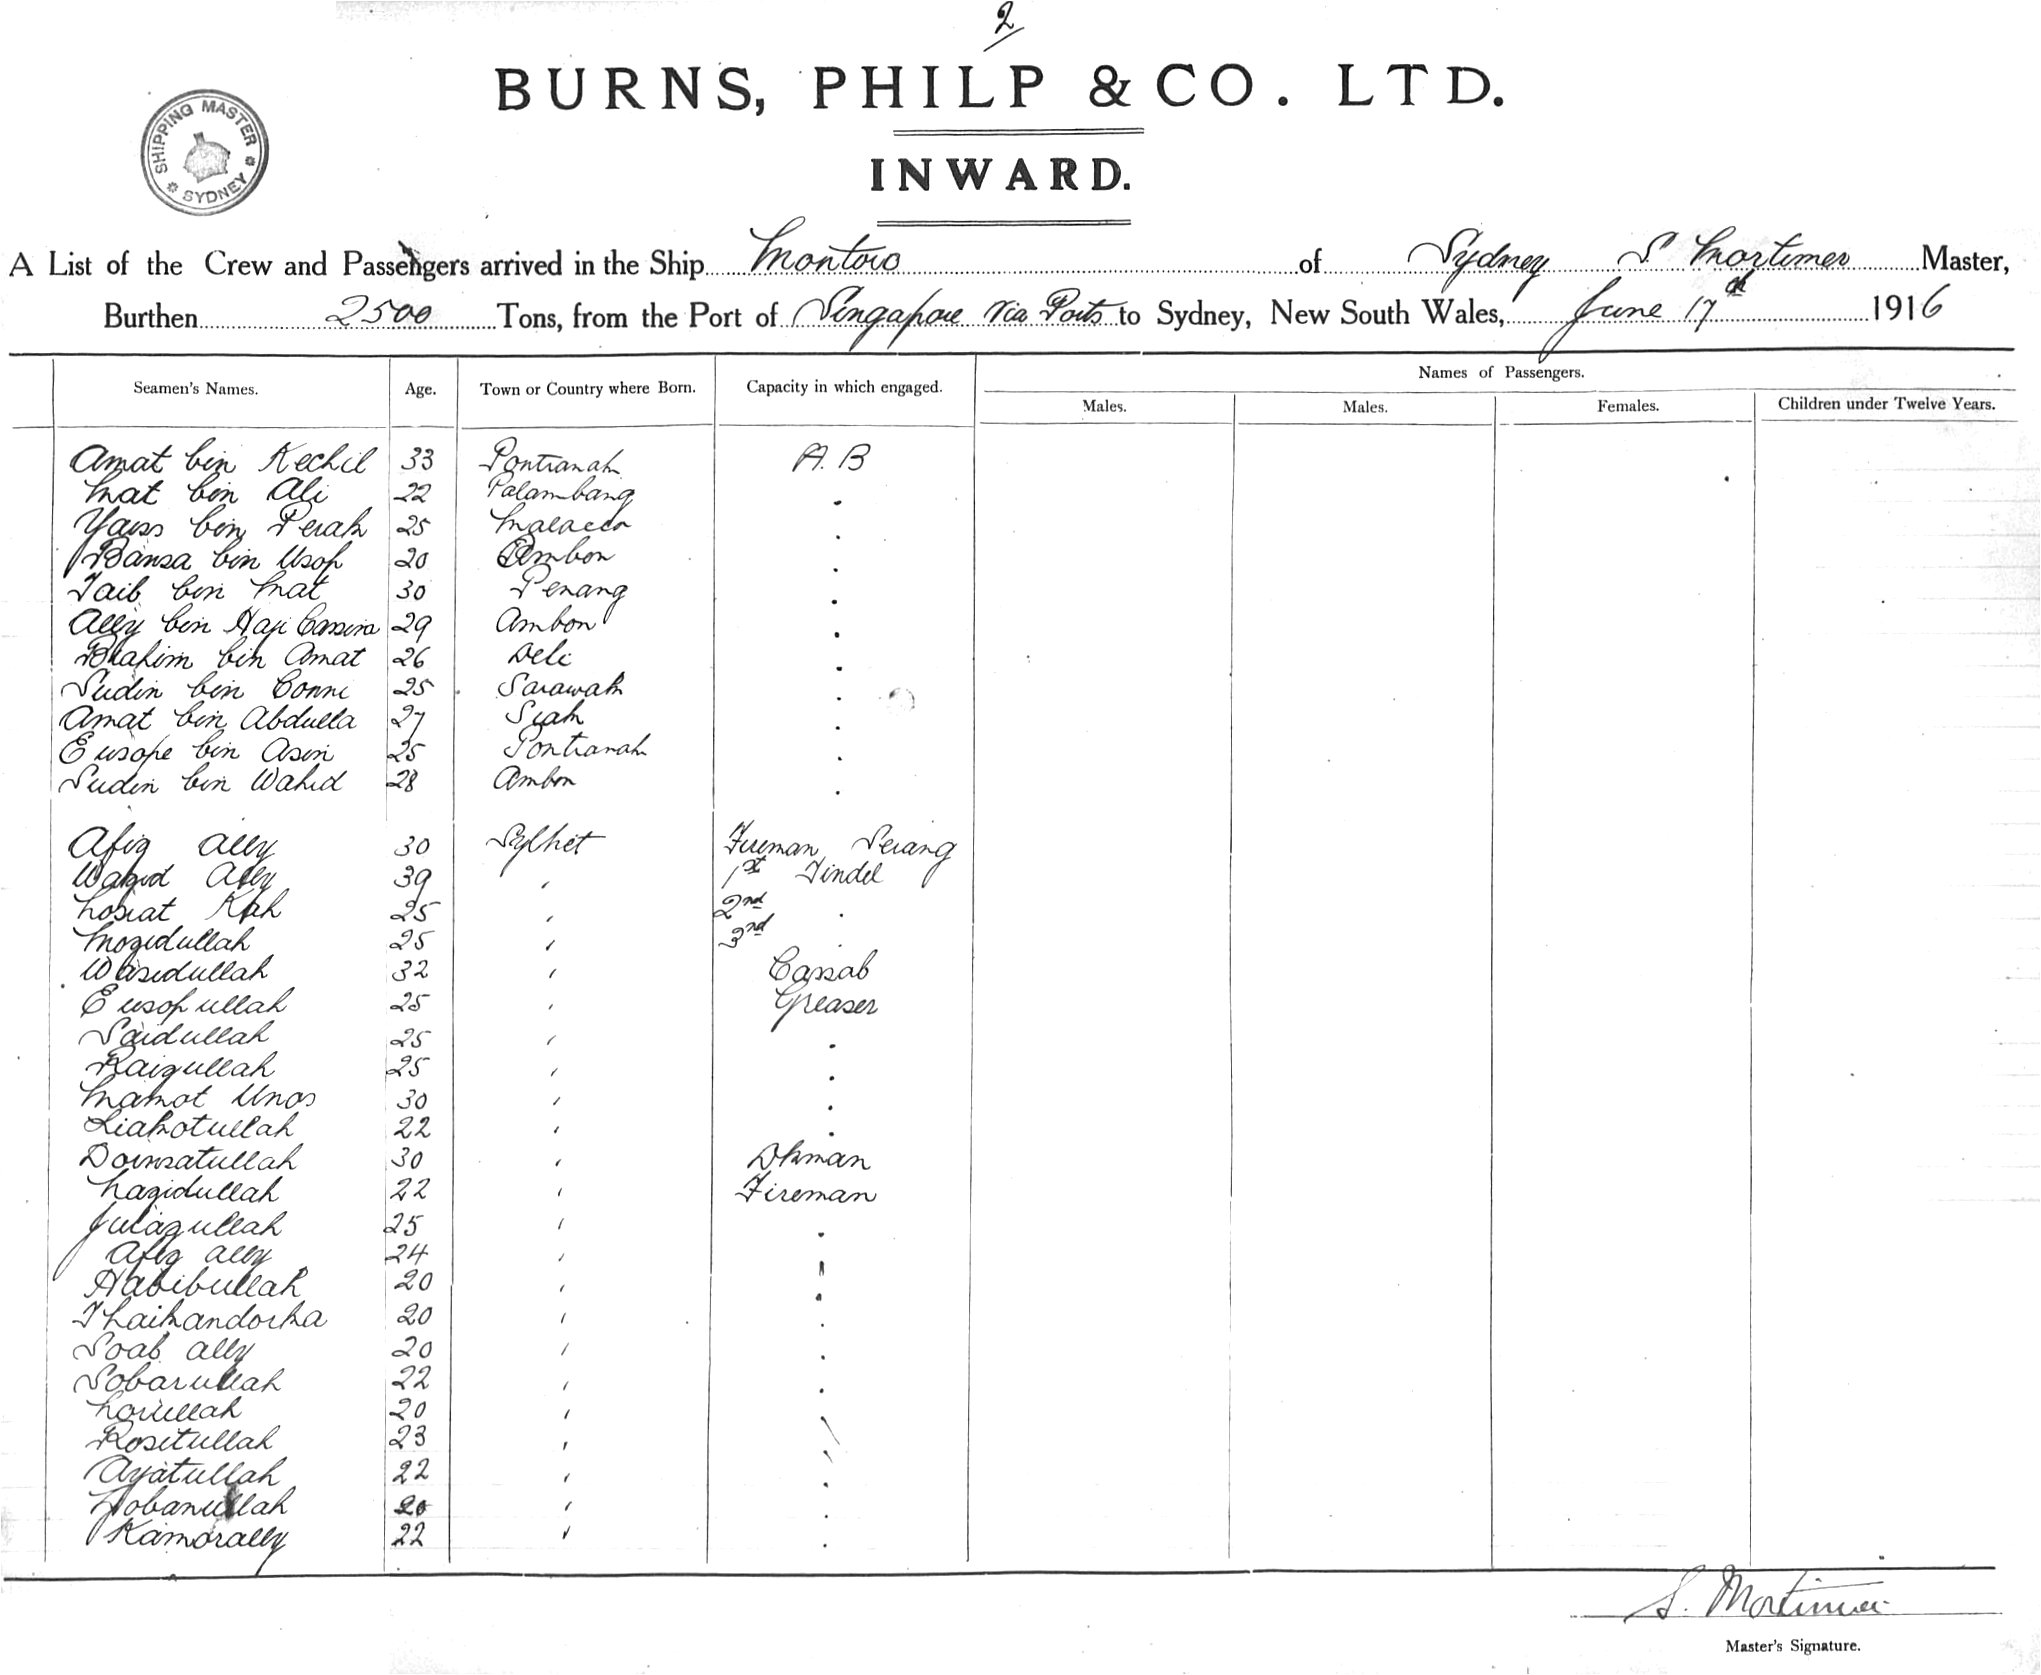 2
BURNS, PHILP & CO. LTD.
INWARD.
SHIPPING MASTER
SYDNEY
A List of the Crew and Passengers arrived in the Ship Montoro of Sydney S Mortimer Master,
Burthen 2500 Tons, from the Port of Singapore via Ports to Sydney, New South Wales, June 17th 1916
Names of Passengers.
Seamen's Names. Age. Town or Country where Born. Capacity in which engaged. Males. Males. Females. Children under Twelve Years.
Amat bin Kechil 33 Pontianak A.B
Mat bin Ali 22 Palambang "
bin Perak 25 Malacca "
Bansa bin Usop 20 Ambon "
Taib bin Mat 30 Penang "
Ally bin Haji 29 Ambon "
Brahim bin Amat 26 Deli "
Sudin bin 25 Sarawak "
Amat bin Abdulla 27 Siak "
Eusope bin Asin 25 Pontianak "
Sudin bin Wahid 28 Ambon "
Afiq Ally 30 Sylhet Fireman Serang
Ally 39 " 1st Tindel
25 " 2nd "
Mozidullah 25 " 3rd "
Wasidullah 32 " Cassab
Eusopullah 25 " Greaser
Saidullah 25 " "
Raizullah 25 " "
Mamot Unos 30 " "
Liakotullah 22 " "
30 " Dkman
Nazidullah 22 " Fireman
25 " "
Afiq Ally 24 " "
Habibullah 20 " "
Thaikandorka 20 " "
Soab Ally 20 " "
Sobarullah 22 " "
Noriullah 20 " "
Rositullah 23 " "
Ayatullah 22 " "
20 " "
Kamorally 22 " "
S. Mortimer
Master's Signature.